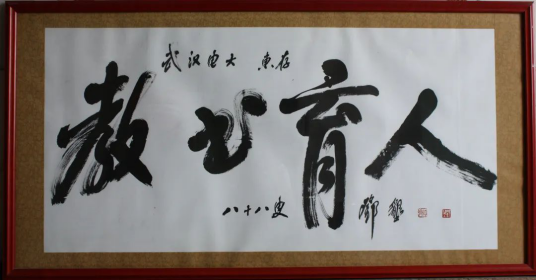 武汉电大 惠存
教书育人
八十八叟 邓垦